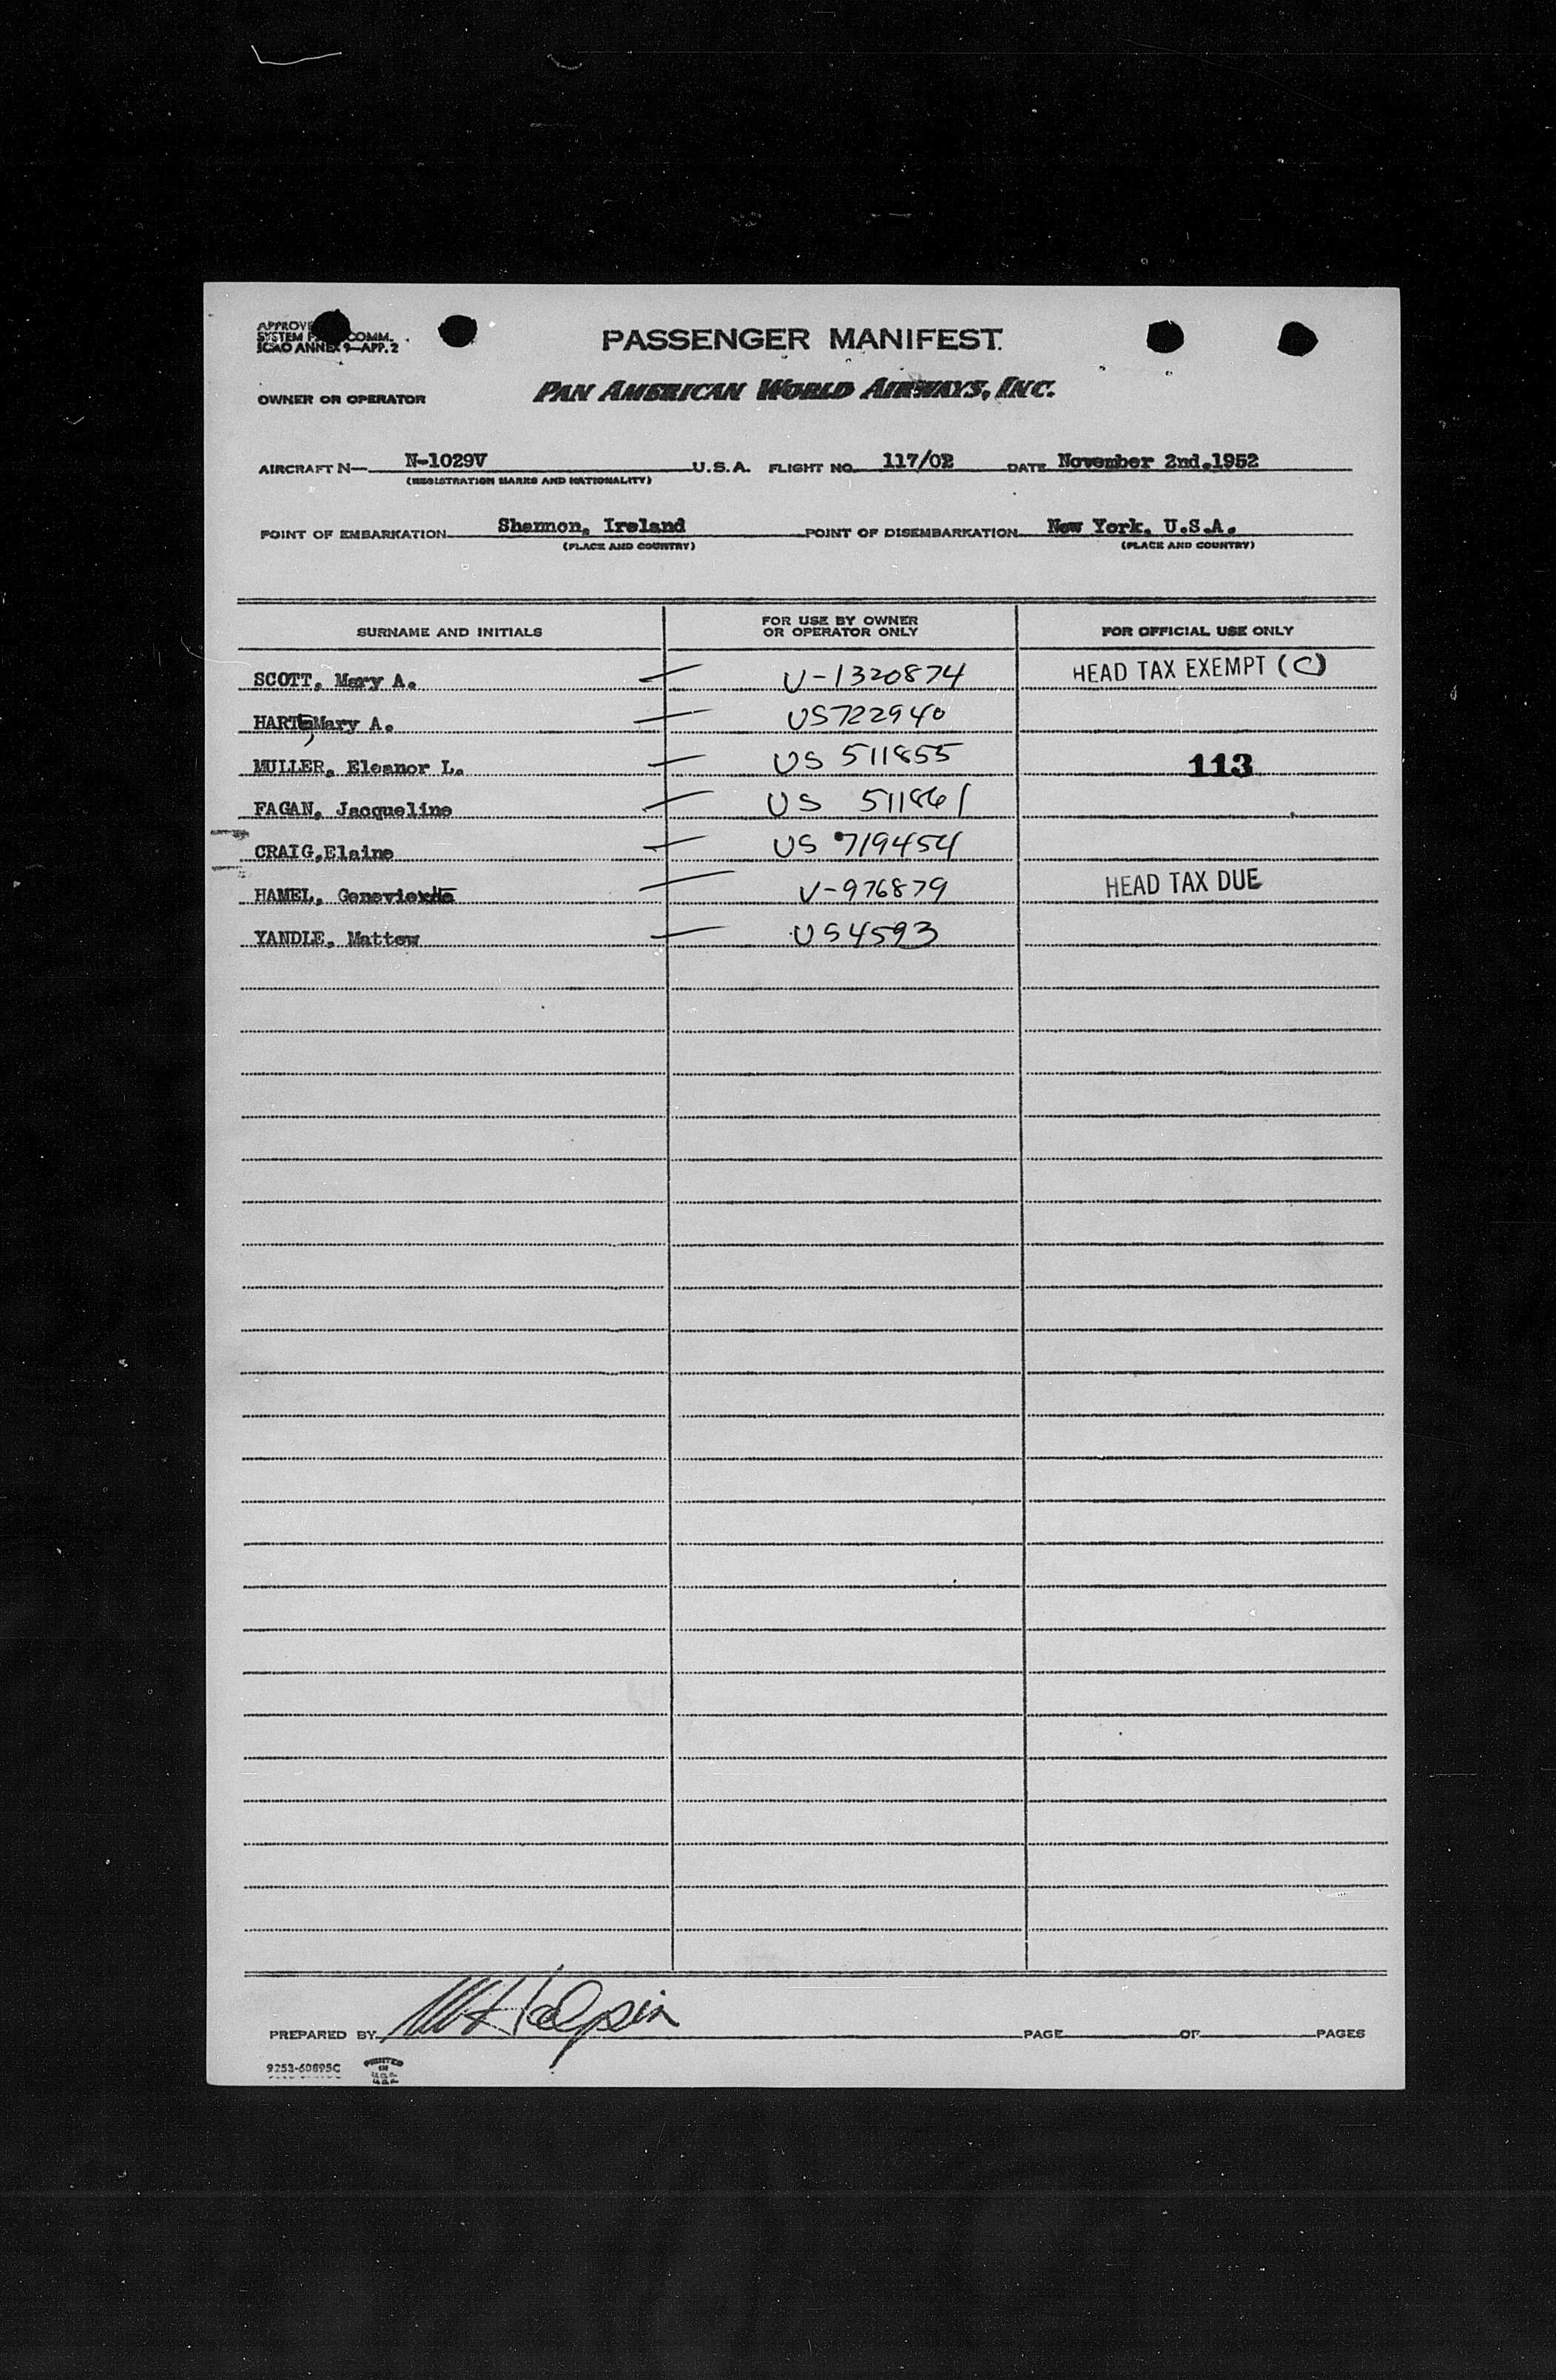 PASSENGER MANIFEST
SYSTEM COMM.
ICAO ANNEX 9—APP. 2
OWNER OR OPERATOR PAN AMERICAN WORLD AIRWAYS, INC.
AIRCRAFT N— N-1029V U.S.A. FLIGHT NO. 117/02 DATE November 2nd.1952
(REGISTRATION MARKS AND NATIONALITY)
POINT OF EMBARKATION Shannon, Ireland POINT OF DISEMBARKATION New York, U.S.A.
(PLACE AND COUNTRY) (PLACE AND COUNTRY)
SURNAME AND INITIALS FOR USE BY OWNER OR OPERATOR ONLY FOR OFFICIAL USE ONLY
SCOTT, Mary A. V-1320874 HEAD TAX EXEMPT (C)
HARTE, Mary A. US722940
MULLER, Eleanor L. US 511855 113
FAGAN, Jacqueline US 511861
CRAIG,Elaine US 719454
HAMEL, V-976879 HEAD TAX DUE
YANDLE, Mattew US4593
PREPARED BY PAGE OF PAGES
9253-60895C PRINTED IN